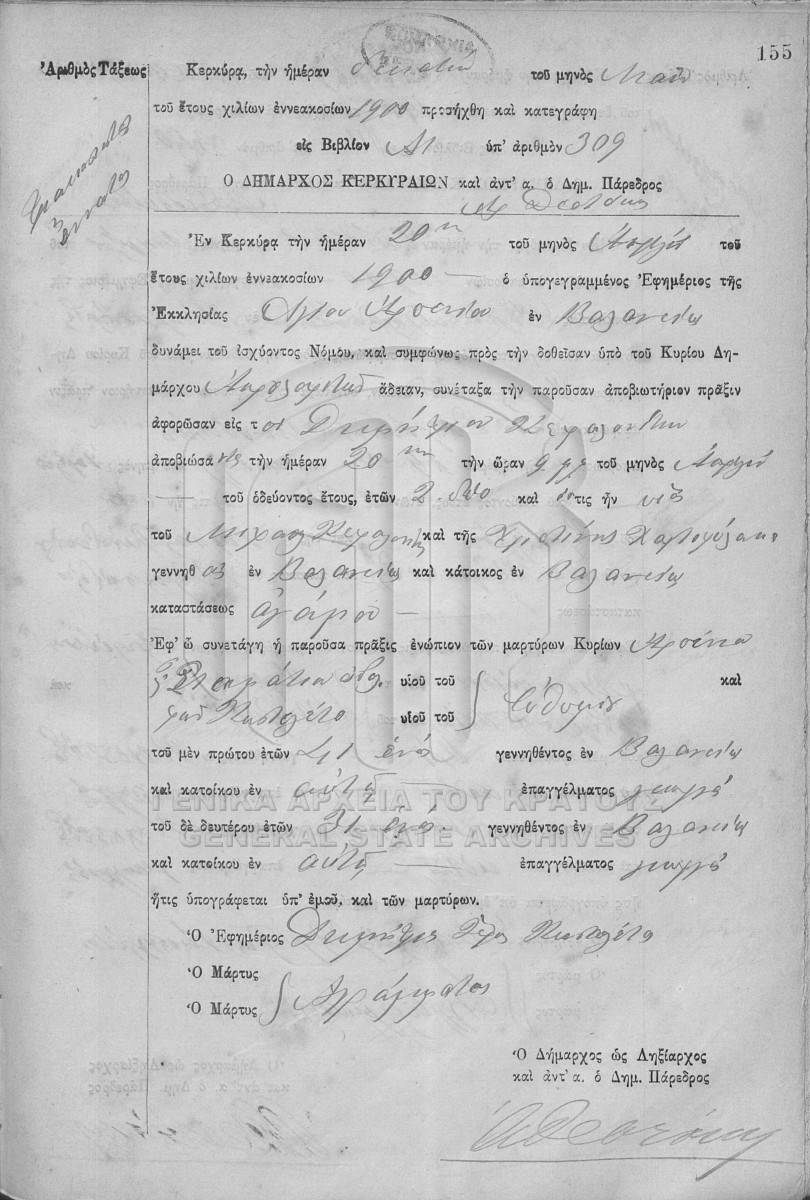 155
Ἀριθμὸς Τάξεως
Κερκύρᾳ, τὴν ἡμέραν τοῦ μηνὸς Μαΐου
τοῦ ἔτους χιλίων ἐννεακοσίων 1900 προσήχθη καὶ κατεγράφη
εἰς Βιβλίον Α1 ὑπ' ἀριθμὸν 309
Ο ΔΗΜΑΡΧΟΣ ΚΕΡΚΥΡΑΙΩΝ καὶ ἀντ' α. ὁ Δημ. Πάρεδρος
Ἐν Κερκύρᾳ τὴν ἡμέραν 20ην τοῦ μηνὸς Ἀπριλίου τοῦ
ἔτους χιλίων ἐννεακοσίων 1900 — ὁ ὑπογεγραμμένος Ἐφημέριος τῆς
Ἐκκλησίας Ἁγίου Ἀρσενίου ἐν Βαλανείῳ
δυνάμει τοῦ ἰσχύοντος Νόμου, καὶ συμφώνως πρὸς τὴν δοθεῖσαν ὑπὸ τοῦ Κυρίου Δη-
μάρχου ἄδειαν, συνέταξα τὴν παροῦσαν ἀποβιωτήριον πρᾶξιν
ἀφορῶσαν εἰς τὸν Δημήτριον Κεφαλονίτην
ἀποβιώσαντα τὴν ἡμέραν 20ην τὴν ὥραν 9 τοῦ μηνὸς Ἀπριλίου
— τοῦ ὁδεύοντος ἔτους, ἐτῶν 2 δύο καὶ ὅστις ἦν υἱὸς
τοῦ Μιχαὴλ Κεφαλονίτη καὶ τῆς Χριστίνης Χαρτοφύλακα
γεννηθεὶς ἐν Βαλανείῳ καὶ κάτοικος ἐν Βαλανείῳ
καταστάσεως ἀγάμου —
Ἐφ' ᾧ συνετάγη ἡ παροῦσα πρᾶξις ἐνώπιον τῶν μαρτύρων Κυρίων Ἀρσένιο
Σταμάτιο υἱοῦ τοῦ Εὐθυμίου καὶ
υἱοῦ τοῦ
τοῦ μὲν πρώτου ἐτῶν 41 ἑνὸς γεννηθέντος ἐν Βαλανείῳ
καὶ κατοίκου ἐν αὐτῇ — ἐπαγγέλματος γεωργὸς
τοῦ δὲ δευτέρου ἐτῶν 31 ἑνὸς γεννηθέντος ἐν Βαλανείῳ
καὶ κατοίκου ἐν αὐτῇ — ἐπαγγέλματος γεωργὸς
ΓΕΝΙΚΑ ΑΡΧΕΙΑ ΤΟΥ ΚΡΑΤΟΥΣ
GENERAL STATE ARCHIVES
ἥτις ὑπογράφεται ὑπ' ἐμοῦ, καὶ τῶν μαρτύρων.
Ὁ Ἐφημέριος Δημήτριος
Ὁ Μάρτυς
Ὁ Μάρτυς Ἀγράμματος
Ὁ Δήμαρχος ὡς Ληξίαρχος
καὶ ἀντ' α. ὁ Δημ. Πάρεδρος